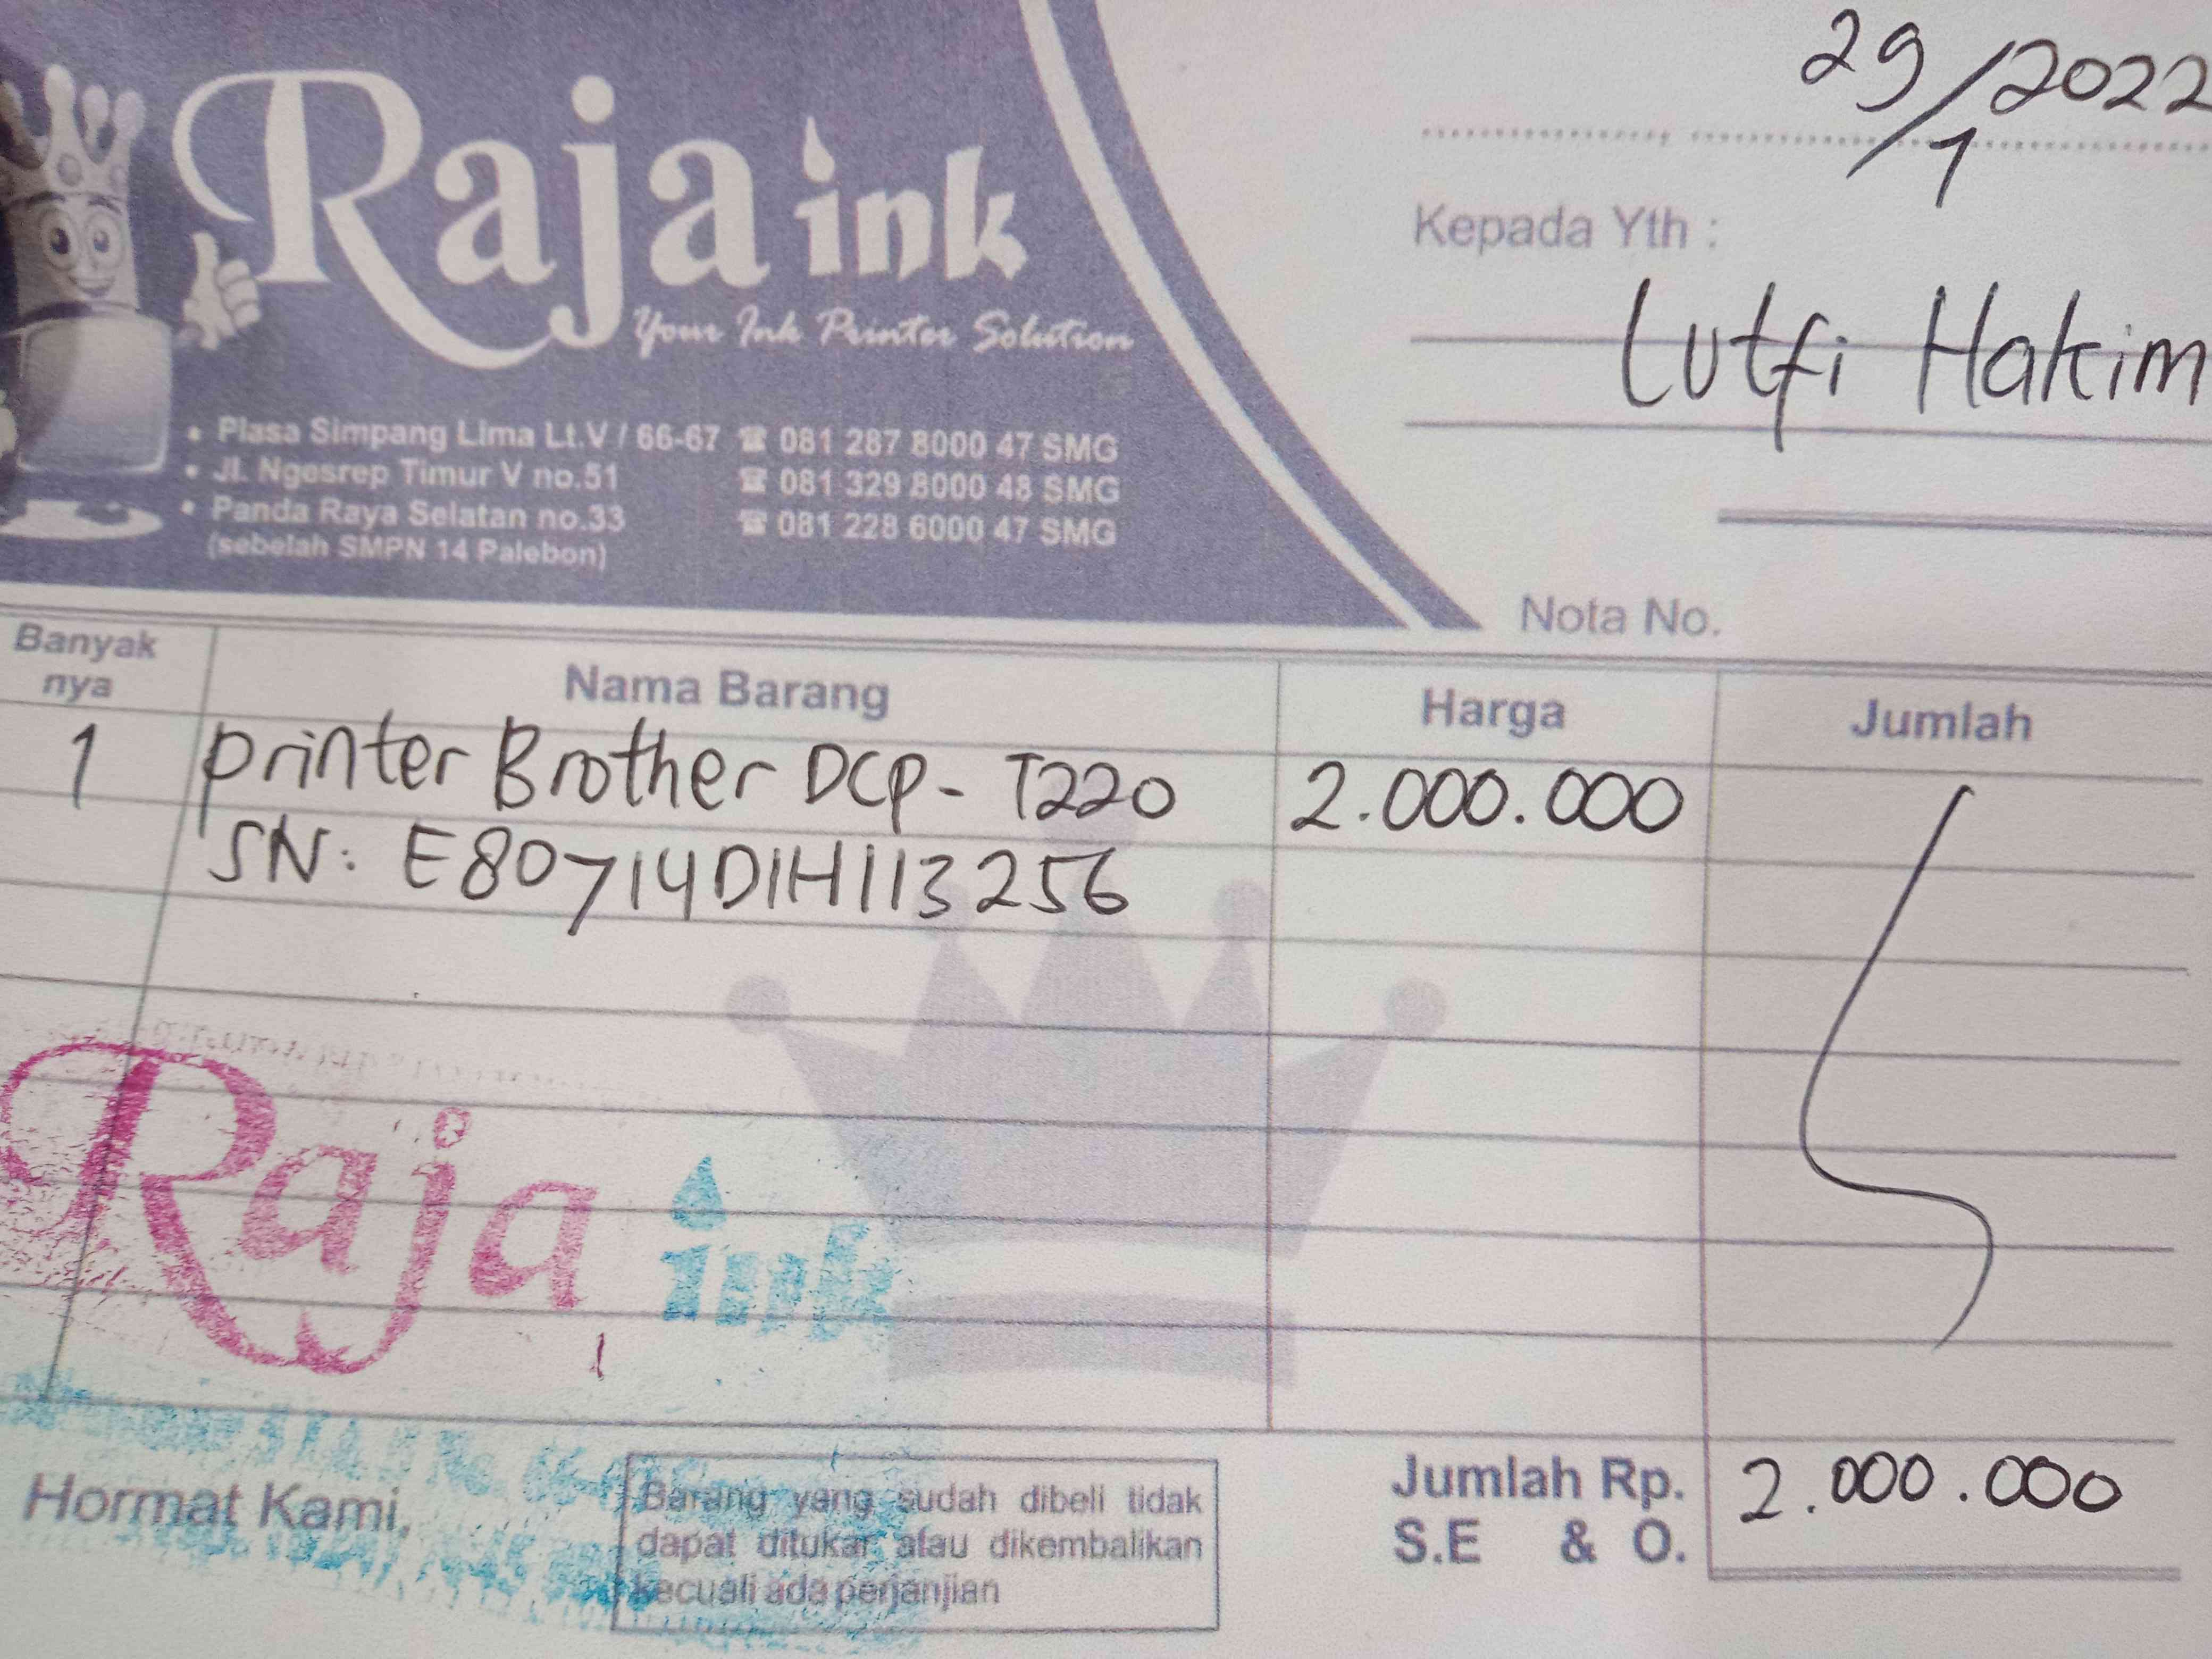 Raja ink
Your Ink Printer Solution
• Plasa Simpang Lima Lt.V / 66-67 ☎ 081 287 8000 47 SMG
• Jl. Ngesrep Timur V no.51 ☎ 081 329 8000 48 SMG
• Panda Raya Selatan no.33 ☎ 081 228 6000 47 SMG
(sebelah SMPN 14 Palebon)
29/1/2022
Kepada Yth :
Lutfi Hakim
Nota No.
Banyak nya Nama Barang Harga Jumlah
1 printer Brother DCP- T220 2.000.000
SN: E80714D1H113256
Raja ink
Hormat Kami,
Barang yang sudah dibeli tidak
dapat ditukar atau dikembalikan
kecuali ada perjanjian
Jumlah Rp. 2.000.000
S.E & O.